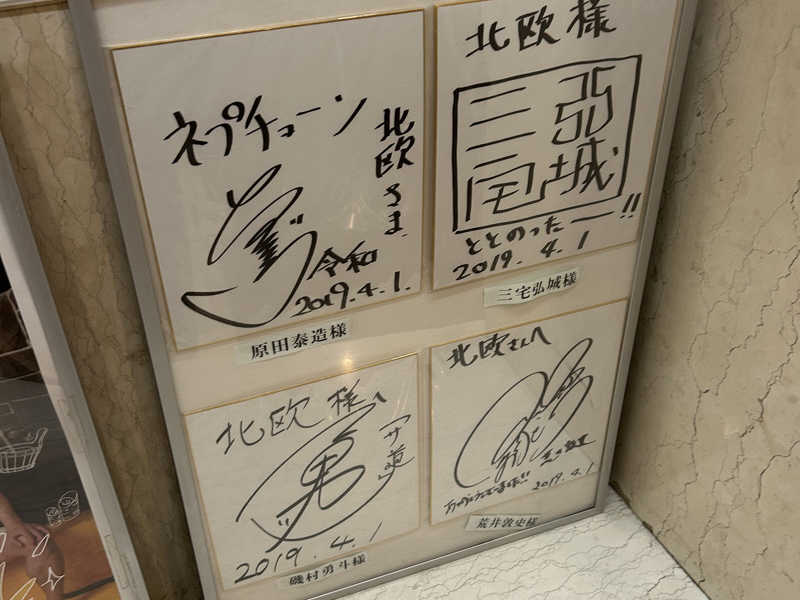 ネプチューン
北欧さま
令和
2019.4.1.
原田泰造様
北欧様
三宅弘城
ととのったー!!
2019.4.1
三宅弘城様
北欧様へ
「サ道」
勇
2019.4.1
磯村勇斗様
北欧さんへ
ありがとうございます!!
2019.4.1
荒井敦史様